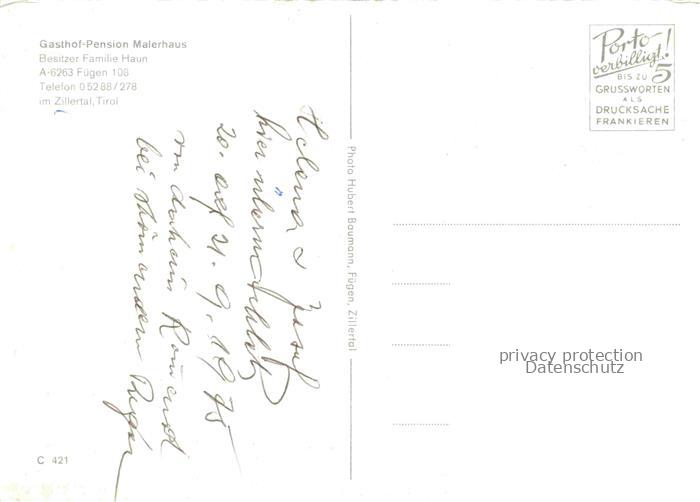 Gasthof-Pension Malerhaus
Besitzer Familie Haun
A-6263 Fügen 108
Telefon 0 52 88 / 278
im Zillertal, Tirol
Helena & Josef
hier übernachtet
20. auf 21. 9. 1975
von daheim kommend
bei strömendem Regen
C 421
Photo Hubert Baumann, Fügen, Zillertal
Porto-
verbilligt!
BIS ZU 5
GRUSSWORTEN
ALS
DRUCKSACHE
FRANKIEREN
privacy protection
Datenschutz